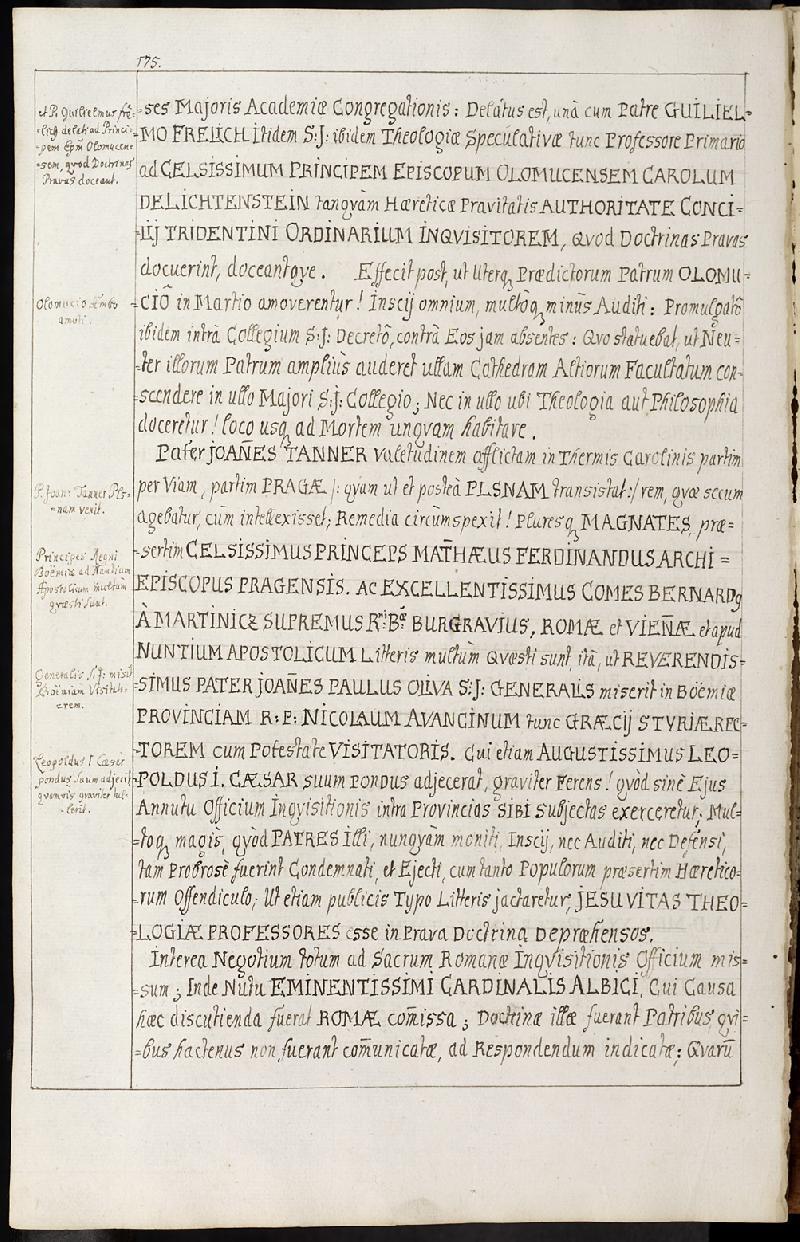 175.
et P. Guilielmus fre-
-lich delati ad Princi-
pem Epm Olomucen-
-sem, qvod Doctrinas
Pravas doceant.
-ses Majoris Academiæ Congregationis: Delatus est, unà cum Patre GUILIEL-
MO FRELICH itidem S:J: ibidem Theologiæ Speculativæ tunc Professore Primario
ad CELSISSIMUM PRINCIPEM EPISCOPUM OLOMUCENSEM CAROLUM
DE LICHTENSTEIN tanqvàm Hæreticæ Pravitatis AUTHORITATE CONCI-
-LIJ TRIDENTINI ORDINARIUM INQVISITOREM, Qvod Doctrinas Pravas
docuerint, doceantqve. Effecit post, ut Uterq, Prædictorum Patrum OLOMU-
Olomucio Ambo
amoti.
-CIÔ in Martio amoverentur! Inscij omnium, multoq minùs Auditi: Promulgatô
ibidem intrà Collegium S:J: Decretô, contrà Eos jam absentes: Qvo statuebat, ut Neu-
-ter illorum Patrum ampliùs auderet ullam Cathedram Altiorum Facultatum con-
-scendere in ullo Majori S:J: Collegio; Nec in ullo ubi Theologia aut Philosophia
doceretur! loco usq ad Mortem unqvam habitare.
Pater JOAÑES TANNER valetudinem afflictam in Thermis Carolinis partim
P. Joan: Tanner Pls-
-nam venit.
per Viam, partim PRAGÆ /: qvam ut et posteà PLSNAM transistat :/ rem, qvæ secum
agebatur, cùm intellexisset; Remedia circumspexit! Pluresq MAGNATES, præ-
Principes Regni
Boëmiæ ad Nuntium
Apostolicum multùm
qvæsti sunt.
-sertim CELSISSIMUS PRINCEPS MATHÆUS FERDINANDUS ARCHI-
EPISCOPUS PRAGENSIS. AC EXCELLENTISSIMUS COMES BERNARDq
À MARTINICZ SUPREMUS R:i B:æ BURGRAVIUS, ROMÆ et VIEÑÆ et apud
NUNTIUM APOSTOLICUM Litteris multùm Qvæsti sunt, ità, ut REVERENDIS-
Generalis S:J: misit
Boëmiam Visitat-
-orem.
-SIMUS PATER JOAÑES PAULUS OLIVA S:J: GENERALIS miserit in Boëmiæ
PROVINCIAM R: P: NICOLAUM AVANCINUM tunc GRÆCIJ STYRIÆ REC-
-TOREM cum Potestate VISITATORIS. Cui etiam AUGUSTISSIMUS LEO-
Leopoldus I Cæsar
pondus suum adjecit
qvamvis graviter tul-
-lerit.
-POLDUS I. CÆSAR suum pondus adjecerat, graviter Ferens! qvòd sinè Ejus
Annutu Officium Inqvisitionis intra Provincias SIBI Subjectas exerceretur; Mul-
-toq magis, qvòd PATRES Illi, nunqvàm moniti, Inscij, nec Auditi, nec Defensi,
tàm Probrosè fuerint Condemnati, et Ejecti, cum tanto Populorum præsertim Hæretico-
rum Offendiculo; Ut etiam publicis Typo Litteris jactaretur; JESUVITAS THEO-
-LOGIÆ PROFESSORES esse in Prava Doctrina Depræhensos.
Interea Negotium totum ad Sacrum Romanæ Inqvisitionis Officium mis-
-sum; Inde Nutu EMINENTISSIMI CARDINALIS ALBICI, Cui Causa
hæc discutienda fuerat ROMÆ com̃issa; Doctrinæ illæ fuerant Patribus, qvi-
-bus hactenus non fuerant com̃unicatæ, ad Respondendum indicatæ; Qvarũ